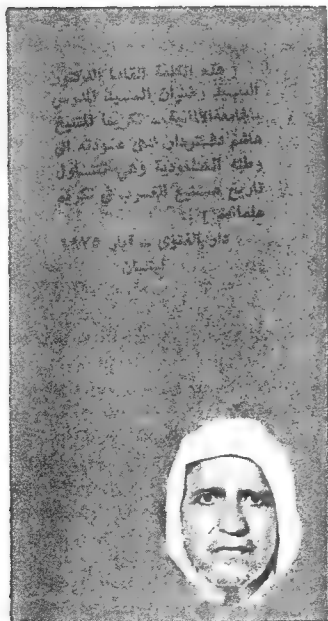 [ هذه الكلمة القاها الدكتور
السيد رضوان السيد المدرس
بالجامعة اللبنانية تكريما للشيخ
هاشم دفتردار في عودته الى
وطنه السعودية وهي تتناول
تاريخ العرب في تكريم
علمائهم ] ..
دار الفتوى - ايار ١٩٧٥
لبنان